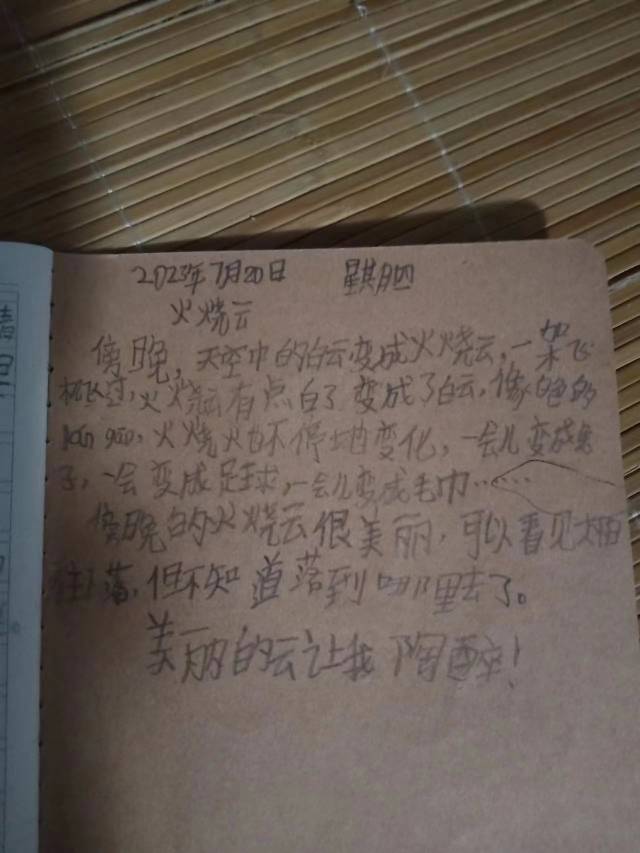 2023年7月20日 星期四
火烧云
傍晚，天空中的白云变成火烧云，一架飞
机飞过，火烧云有点白了变成了白云，像白色的
火烧火也不停地变化，一会儿变成兔
子，一会变成足球，一会儿变成毛巾……
傍晚的火烧云很美丽，可以看见太阳
往下落，但不知道落到哪里去了。
美丽的云让我陶醉！
晴